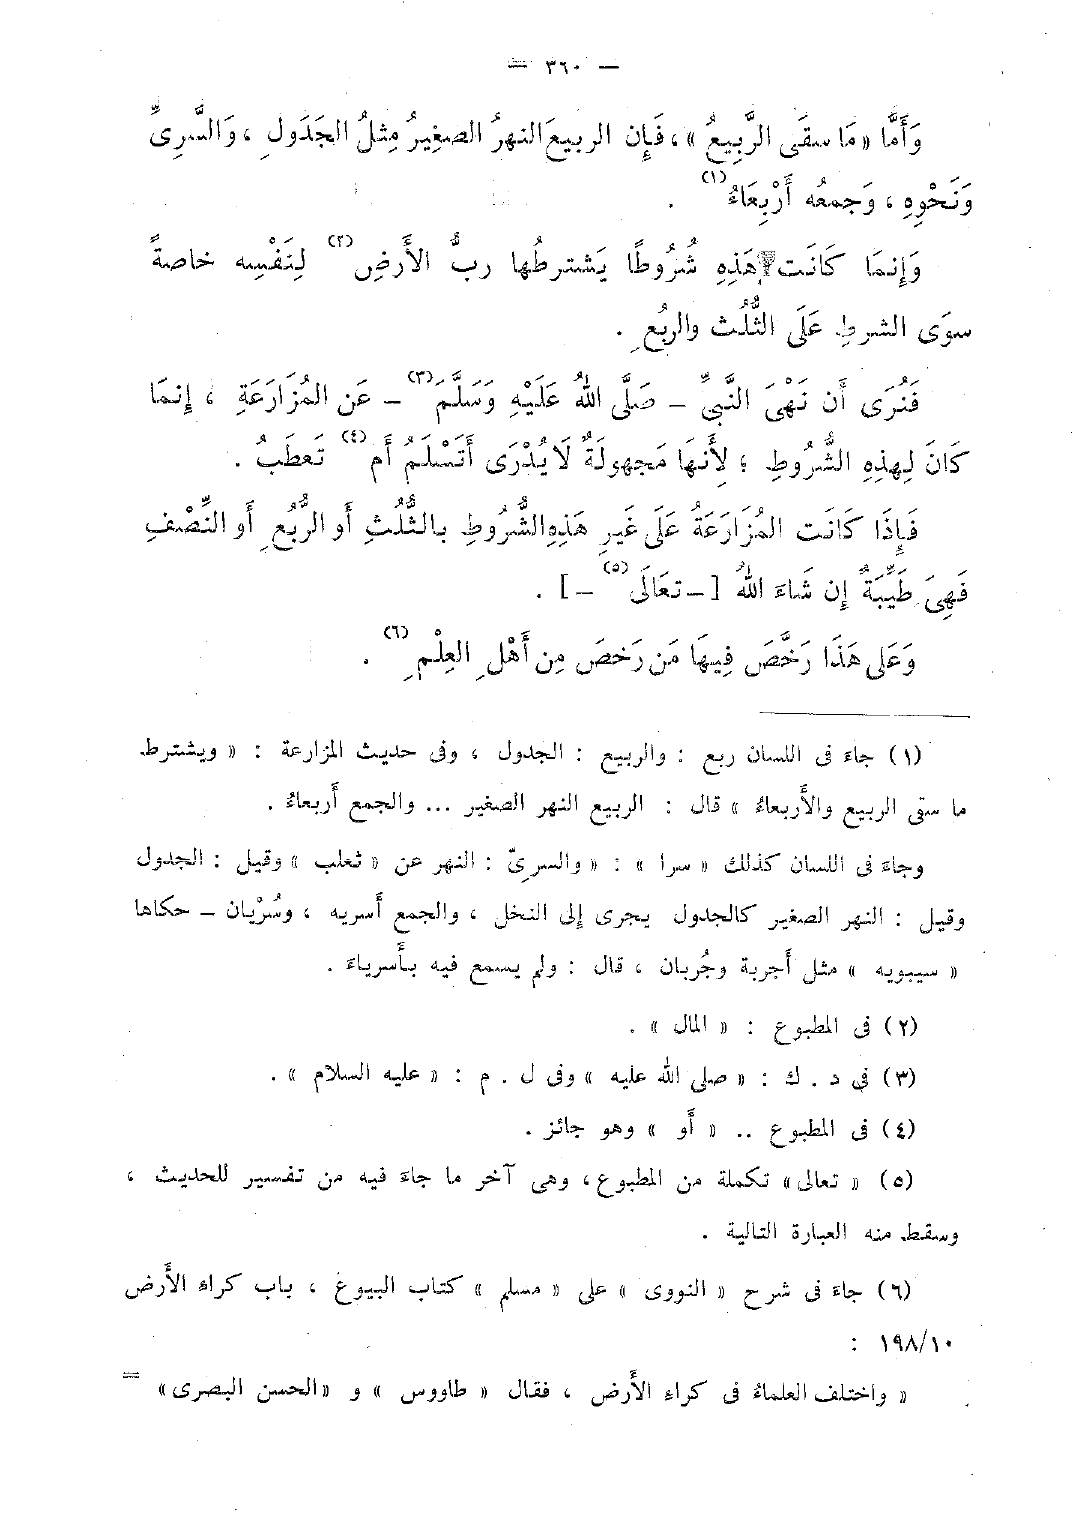 — ٣٦٠ —
وَأَمَّا « مَا سقَى الرَّبِيعُ » ، فَإِن الربيعَ النهرُ الصغيرُ مِثلُ الجَدَولِ ، وَالسَّرِىِّ
وَنَحْوِهِ ، وَجمعُه أَرْبِعَاءُ (١) .
وَإِنمَا كَانَت هَذِهِ شُرُوطًا يَشترطُها ربُّ الأَرضِ (٢) لِنَفْسِه خاصةً
سوَى الشرطِ عَلَى الثُّلُث والربُعِ .
فَنُرَى أَن نَهْىَ النَّبِىِّ – صَلَّى اللهُ عَلَيْهِ وَسَلَّمَ (٣) – عَن المُزَارَعَةِ ، إِنمَا
كَانَ لِهذِهِ الشُّرُوطِ ؛ لِأَنهَا مَجهولَةٌ لَا يُدْرَى أَتَسْلَمُ أَم (٤) تَعطَبُ .
فَإِذَا كَانَت المُزَارَعَةُ عَلَى غَيرِ هَذِهِ الشُّرُوطِ بالثُّلُثِ أَو الرُّبُعِ أَو النِّصْفِ
فَهِىَ طَيِّبَةٌ إِن شَاءَ اللهُ [ – تعَالَى (٥) – ] .
وَعَلى هَذَا رَخَّصَ فِيهَا مَن رَخصَ مِن أَهْلِ العِلْمِ (٦) .
(١) جاءَ فى اللسان ربع : والربيع : الجدول ، وفى حديث المزارعة : « ويشترط
ما ستى الربيع والأَربعاءُ » قال : الربيع النهر الصغير ... والجمع أَربعاءُ .
وجاءَ فى اللسان كذلك « سرا » : « والسرىّ : النهر عن « ثعلب » وقيل : الجدول
وقيل : النهر الصغير كالجدول يجرى إلى النخل ، والجمع أَسريه ، وسُرْيان – حكاها
« سيبويه » مثل أَجربة وجُربان ، قال : ولم يسمع فيه بأَسرياءَ .
(٢) فى المطبوع : « المال » .
(٣) فى د . ك : « صلى الله عليه » وفى ل . م : « عليه السلام » .
(٤) فى المطبوع .. « أَو » وهو جائز .
(٥) « تعالى » تكملة من المطبوع ، وهى آخر ما جاءَ فيه من تفسير للحديث ،
وسقط منه العبارة التالية .
(٦) جاءَ فى شرح « النووى » على « مسلم » كتاب البيوع ، باب كراءِ الأَرض
١٩٨/١٠ :
« واختلف العلماءُ فى كراءِ الأَرض ، فقال « طاووس » و « الحسن البصرى » =